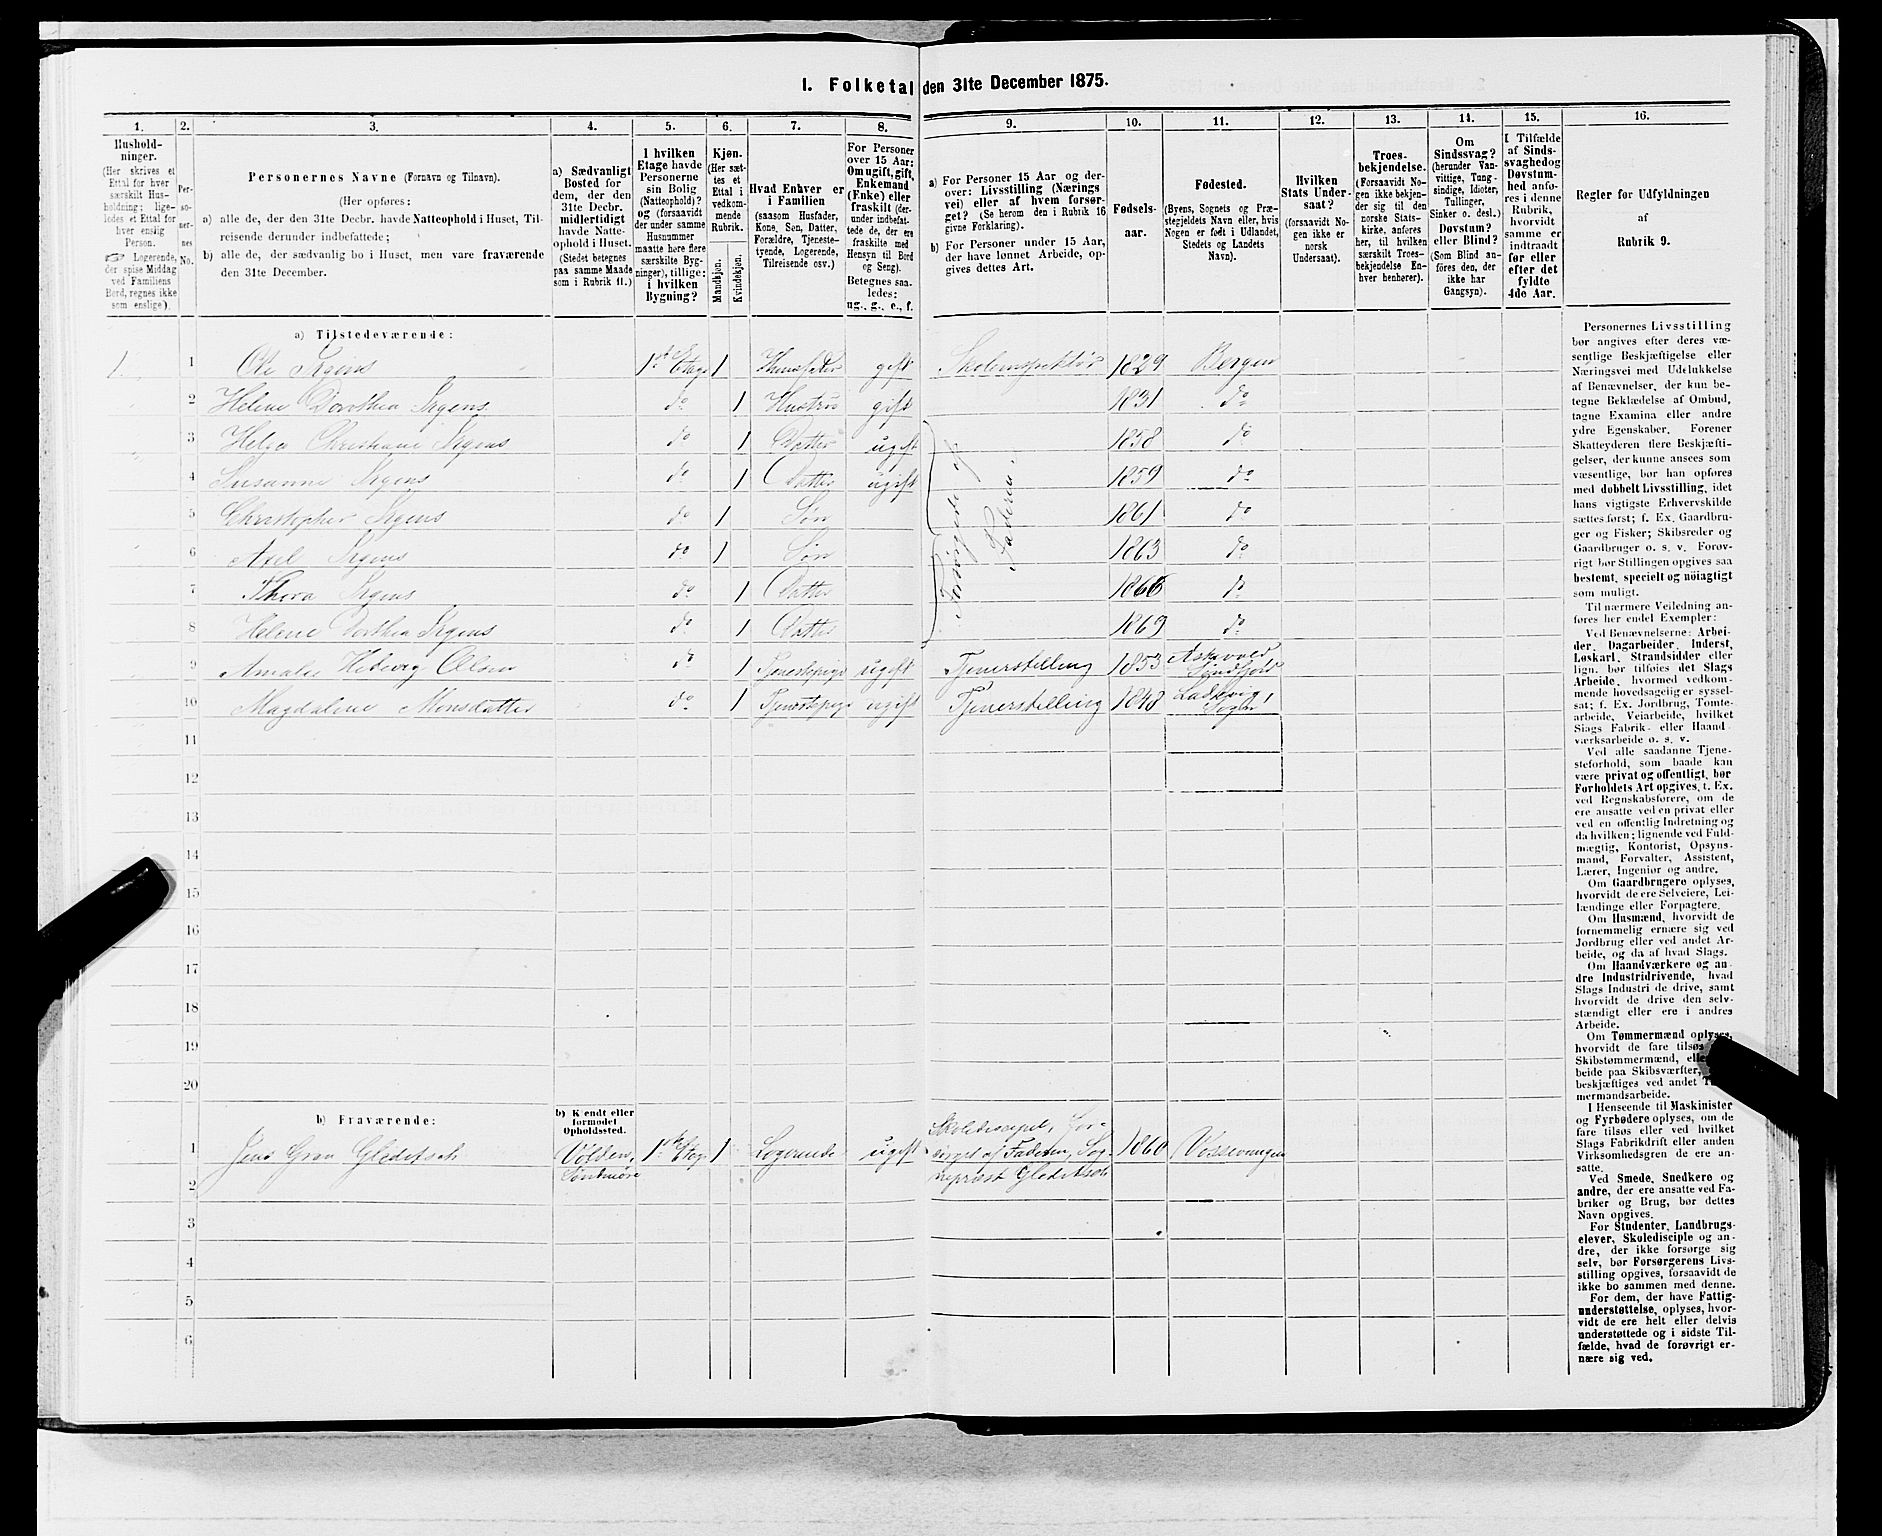 1. Folketal den 31te December 1875.
1. 2. 3. 4. 5. 6. 7. 8. 9. 10. 11. 12. 13. 14. 15. 16.
Hushold-
ninger.
(Her skrives et
Ettal for hver
særskilt Hus-
holdning; lige-
ledes et Ettal for
hver enslig
Person.
Logerende,
der spise Middag
ved Familiens
Bord, regnes ikke
som enslige).
Per-
so-
ner-
nes
No.
Personernes Navne (Fornavn og Tilnavn).
(Her opføres:
a) alle de, der den 31te Decbr. havde Natteophold i Huset, Til-
reisende derunder indbefattede;
b) alle de, der sædvanlig bo i Huset, men vare fraværende
den 31te December.
a) Sædvanligt
Bosted for
dem, der den
31te Decbr.
midlertidigt
havde Natte-
ophold i Huset.
(Stedet betegnes
paa samme Maade
som i Rubrik 11.)
I hvilken
Etage havde
Personerne
sin Bolig
(Natteophold)?
og (forsaavidt
der under samme
Husnummer
maatte here flere
særskilte Byg-
ninger), tillige:
i hvilken
Bygning?
Kjøn.
(Her sæt-
tes et
Ettal i
vedkom-
mende
Rubrik.
Mandkjøn.
Kvindekjøn.
Hvad Enhver er
i Familien
(saasom Husfader,
Kone, Søn, Datter,
Forældre, Tjeneste-
tyende, Logerende,
Tilreisende osv.)
For Personer
over 15 Aar:
Om ugift, gift,
Enkemand
(Enke) eller
fraskilt (der-
under indbefat-
tede de, der ere
fraskilte med
Hensyn til Bord
og Seng).
Betegnes saa-
ledes:
ug., g., e., f.
a) For Personer 15 Aar og der-
over: Livsstilling (Nærings
vei) eller af hvem forsør-
get? (Se herom den i Rubrik 16
givne Forklaring).
b) For Personer under 15 Aar,
der have lønnet Arbeide, op-
gives dettes Art.
Fødsels-
aar.
Fødested.
(Byens, Sognets og Præ-
stegjeldets Navn eller, hvis
Nogen er født i Udlandet,
Stedets og Landets
Navn).
Hvilken
Stats Under-
saat?
(forsaavidt No-
gen ikke er
norsk
Undersaat).
Troes-
bekjendelse.
(Forsaavidt No-
gen ikke bekjen-
der sig til den
norske Stats-
kirke, anføres
her, til hvilken
særskilt Troes-
bekjendelse En-
hver henhører).
Om
Sindssvag?
(herunder Van-
vittige, Tung-
sindige, Idioter,
Tullinger,
Sinker o. desl.)
Døvstum?
eller Blind?
(Som Blind an-
føres den, der
ikke har
Gangsyn).
I Tilfælde
af Sinds-
svaghed og
Døvstum-
hed anfø-
res i denne
Rubrik,
hvorvidt
samme er
indtraadt
før eller
efter det
fyldte
4de Aar.
Regler for Udfyldningen
af
Rubrik 9.
a) Tilstedeværende:
1. 1 Ole Irgens 1ste Etage 1 Huusfader gift Skoleinspektør 1829 Bergen
2 Helene Dorothea Irgens do 1 Hustru gift 1831 do
3 Helga Christiane Irgens do 1 Datter ugift 1858 do
4 Susanne Irgens do 1 Datter ugift 1859 do
5 Christopher Irgens do 1 Søn 1861 do
6 Axel Irgens do 1 Søn 1863 do
7 Thora Irgens do 1 Datter 1866 do
8 Helene Dorthea Irgens do 1 Datter 1869 do
Forsørgede af
Faderen.
9 Amalie Hedevig Olsen do 1 Tjenestepige ugift Tjenerstilling 1853 Askevold
Søndfjord
10 Magdalene Monsdatter do 1 Tjenestepige ugift Tjenerstilling 1848 Ladevig,
Sogn
11
12
13
14
15
16
17
18
19
20
b) Fraværende:
b) Kjendt eller
formodet
Opholdssted.
1 Jens Gran Gleditsch Volden, 1ste Etage 1 Logerende ugift Skolediscipel, for- 1860 Vossevangen
Søndmøre
sørget af Faderen, Sog-
nepræst Gleditsch
2
3
4
5
6
Personernes Livsstilling
bør angives efter deres væ-
sentlige Beskjæftigelse eller
Næringsvei med Udelukkelse
af Benævnelser, der kun be-
tegne Beklædelse af Ombud,
tagne Examina eller andre
ydre Egenskaber. Forener
Skatteyderen flere Beskjæfti-
gelser, der kunne ansees som
væsentlige, bør han opføres
med dobbelt Livsstilling, idet
hans vigtigste Erhvervskilde
sættes først; f. Ex. Gaardbru-
ger og Fisker; Skibsreder og
Gaardbruger o. s. v. Forøv-
rigt bør Stillingen opgives saa
bestemt, specielt og nöiagtigt
som muligt.
Til nærmere Veiledning an-
føres her endel Exempler:
Ved Benævnelserne: Arbei-
der, Dagarbeider, Inderst,
Løskarl, Strandsidder eller
lign. bør tilføies det Slags
Arbeide, hvormed vedkom-
mende hovedsagelig er syssel-
sat; f. Ex. Jordbrug, Tomte-
arbeide, Veiarbeide, hvilket
Slags Fabrik- eller Haand-
værksarbeide o. s. v.
Ved alle saadanne Tjene-
steforhold, som baade kan
være privat og offentligt, bør
Forholdets Art opgives, f. Ex.
ved Regnskabsførere, om de
ere ansatte ved en privat eller
ved en offentlig Indretning og
da hvilken; lignende ved Fuld-
mægtig, Kontorist, Opsyns-
mand, Forvalter, Assistent,
Lærer, Ingeniør og andre.
Om Gaardbrugere oplyses,
hvorvidt de ere Selveiere, Lei-
lændinge eller Forpagtere.
Om Husmænd, hvorvidt de
fornemmelig ernære sig ved
Jordbrug eller ved andet Ar-
beide, og da af hvad Slags.
Om Haandværkere og an-
dre Industridrivende, hvad
Slags Industri de drive, samt
hvorvidt de drive den selv-
stændigt eller ere i andres
Arbeide.
Om Tømmermænd oplyses,
hvorvidt de fare tilsøs
Skibstømmermænd,
beide paa Skibsværfter,
beskjæftiges ved andet
mermandsarbeide.
I Henseende til Maskinister
og Fyrbødere oplyses, om de
fare tilsøs eller ved hvilket
Slags Fabrikdrift eller anden
Virksomhedsgren de ere an-
satte.
Ved Smede, Snedkere og
andre, der ere ansatte ved Fa-
briker og Brug, bør dettes
Navn opgives.
For Studenter, Landbrugs-
elever, Skoledisciple og an-
dre, der ikke forsørge sig
selv, bør Forsørgerens Livs-
stilling opgives, forsaavidt de
ikke bo sammen med denne.
For dem, der have Fattig-
understøttelse, oplyses, hvor-
vidt de ere helt eller delvis
understøttede og i sidste Til-
fælde, hvad de forøvrigt er-
nære sig ved.